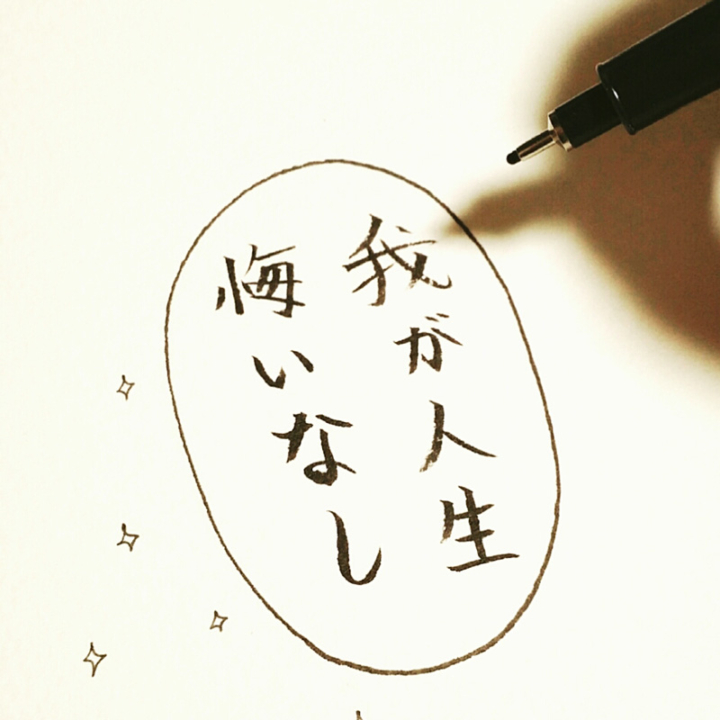 我が人生
悔いなし